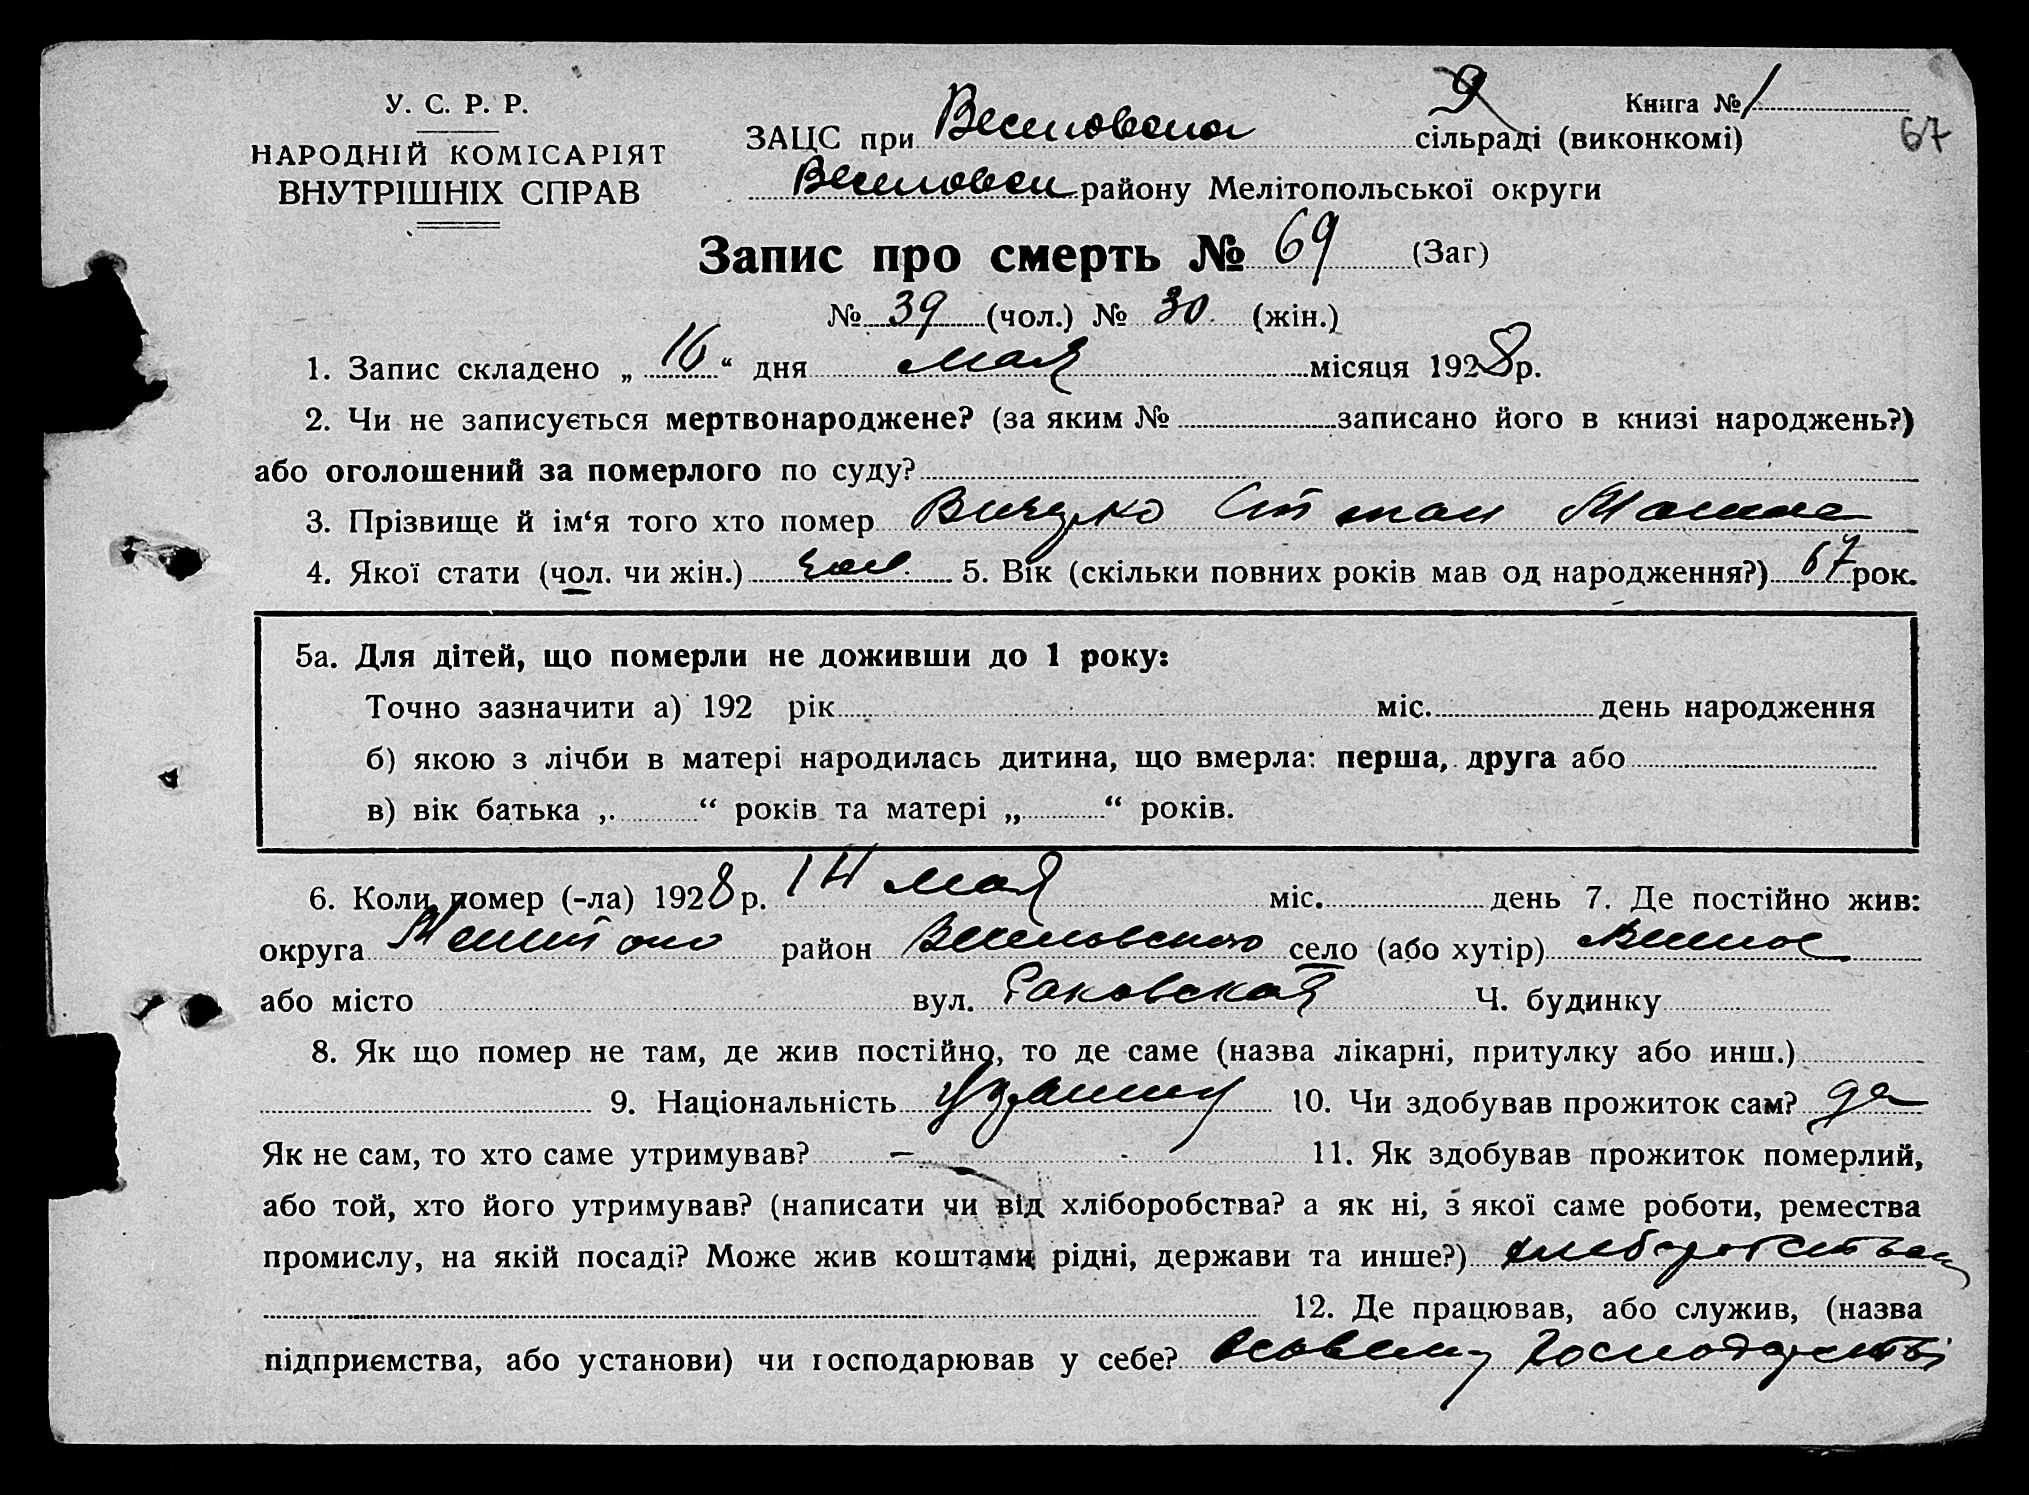 У. С. Р. Р.
НАРОДНІЙ КОМІСАРІЯТ
ВНУТРІШНІХ СПРАВ
9
Книга № 1
67
ЗАЦС при сільраді (виконкомі)
району Мелітопольської округи
Запис про смерть № 69 (Заг)
№ 39 (чол.) № 30 (жін.)
1. Запис складено „ 16 “ дня мая місяця 1928 р.
2. Чи не записується мертвонароджене? (за яким № записано його в книзі народжень?)
або оголошений за померлого по суду?
3. Прізвище й ім‘я того хто помер
4. Якої стати (чол. чи жін.) чол. 5. Вік (скільки повних років мав од народження?) 67 рок.
5а. Для дітей, що померли не доживши до 1 року:
Точно зазначити а) 192 рік міс. день народження
б) якою з лічби в матері народилась дитина, що вмерла: перша, друга або
в) вік батька „ “ років та матері „ “ років.
6. Коли помер (-ла) 1928 р. 14 мая міс. день 7. Де постійно жив:
округа район Веселовского село (або хутір)
або місто вул. Раковская Ч. будинку
8. Як що помер не там, де жив постійно, то де саме (назва лікарні, притулку або инш.)
9. Національність 10. Чи здобував прожиток сам? да
Як не сам, то хто саме утримував? — 11. Як здобував прожиток померлий,
або той, хто його утримував? (написати чи від хліборобства? а як ні, з якої саме роботи, ремества
промислу, на якій посаді? Може жив коштами рідні, держави та инше?)
12. Де працював, або служив, (назва
підприємства, або установи) чи господарював у себе? господарстві